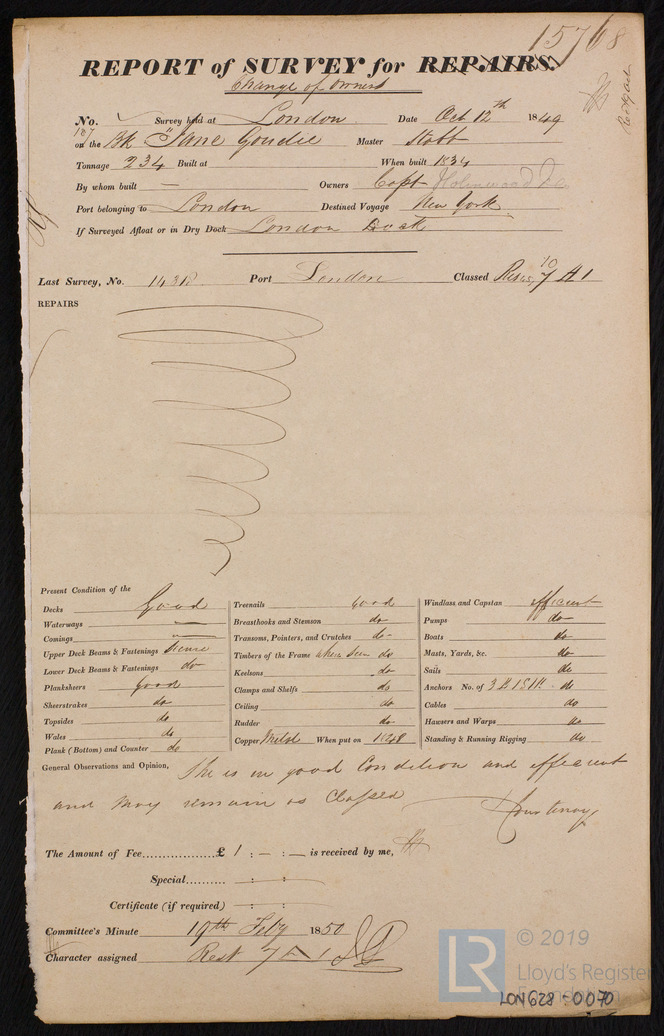 15768
REPORT of SURVEY for REPAIRS.
Change of Owners
No. Survey held at London Date Oct 12th 1849
187
on the Bk "Jane Goudie Master Stobb
Tonnage 234 Built at When built 1834
By whom built — Owners Capt
Port belonging to London Destined Voyage New York
If Surveyed Afloat or in Dry Dock London Dock
Last Survey, No. 1438 Port London Classed 10 7 A 1
REPAIRS
Present Condition of the
Decks Good
Waterways —
Comings —
Upper Deck Beams & Fastenings Secure
Lower Deck Beams & Fastenings do
Planksheers Good
Sheerstrakes do
Topsides do
Wales do
Plank (Bottom) and Counter do
Treenails Good
Breasthooks and Stemson do
Transoms, Pointers, and Crutches do
Timbers of the Frame where seen do
Keelsons do
Clamps and Shelfs do
Ceiling do
Rudder do
Copper When put on 1848
Windlass and Capstan efficient
Pumps do
Boats do
Masts, Yards, &c. do
Sails do
Anchors No. of do
Cables do
Hawsers and Warps do
Standing & Running Rigging do
General Observations and Opinion, She is in good Condition and efficient
and may remain as Classed
Courtenay
The Amount of Fee £ 1 : — : — is received by me,
Special : :
Certificate (if required) : :
Committee's Minute 19th Feby 1850
Character assigned Rest 7 A 1
LR © 2019
Lloyd's Register
Foundation
LON628-0070